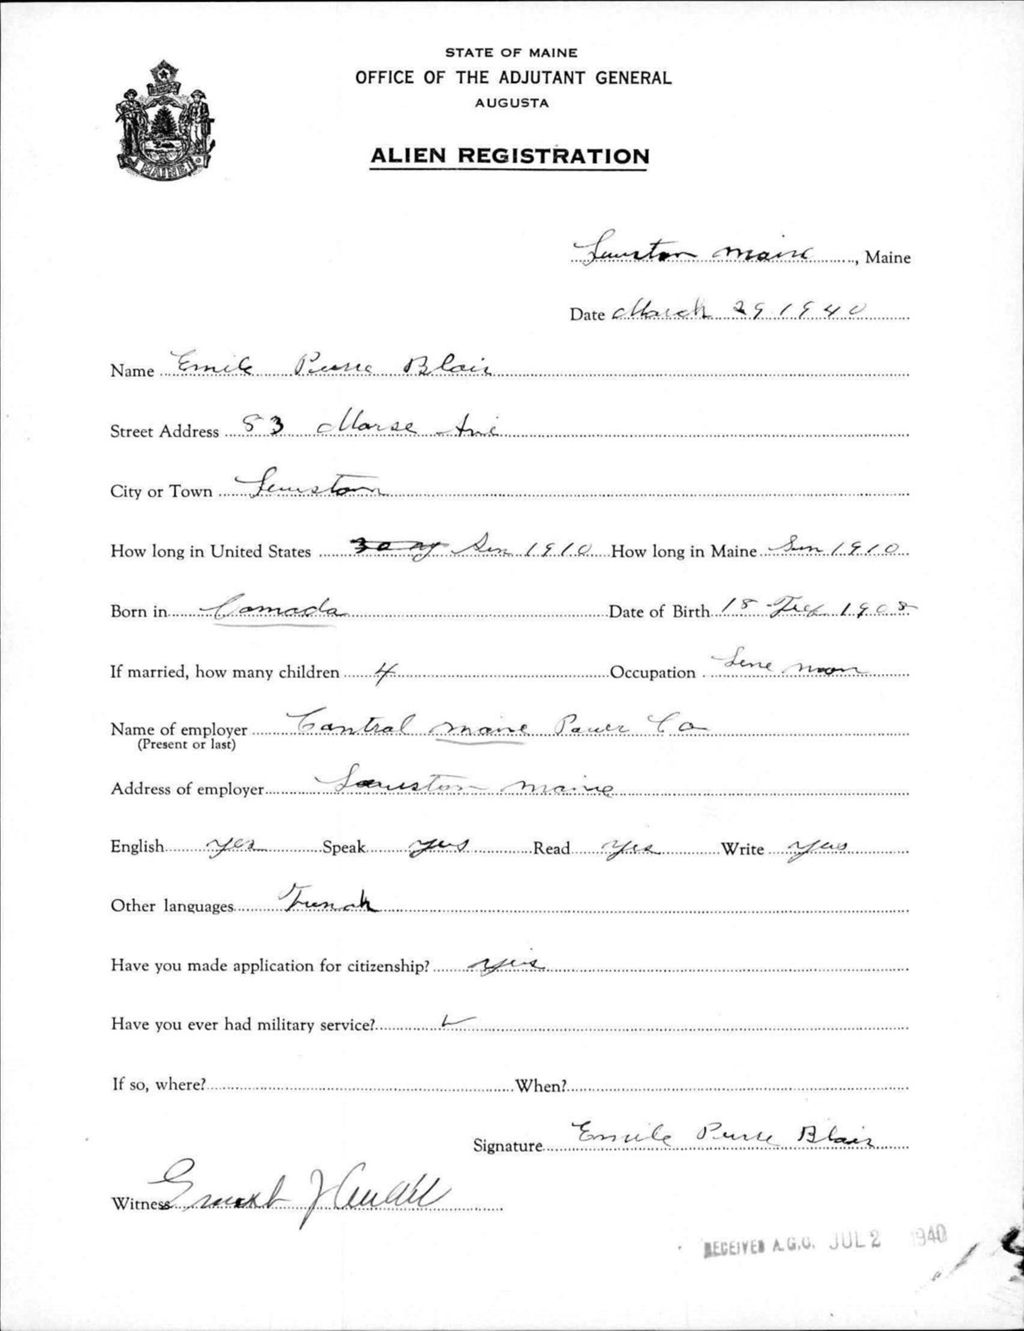 STATE OF MAINE
OFFICE OF THE ADJUTANT GENERAL
AUGUSTA
ALIEN REGISTRATION
MAINE
Lewiston Maine, Maine
Date March 29 1940
Name Emile Pierre Blair
Street Address 83 Morse Ave
City or Town Lewiston
How long in United States 1910 How long in Maine 1910
Born in Canada Date of Birth 18 1908
If married, how many children 4 Occupation Line man
Name of employer Central Maine Power Co
(Present or last)
Address of employer Lewiston Maine
English yes Speak yes Read yes Write yes
Other languages French
Have you made application for citizenship? yes
Have you ever had military service?
If so, where? When?
Signature Emile Pierre Blair
Witness Ernest J
RECEIVED A.G.O. JUL 2 1940